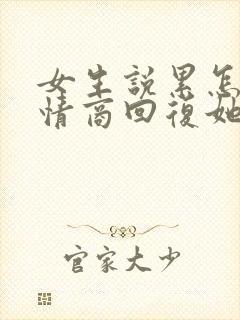 女生說累怎
情商回復她
官家大少